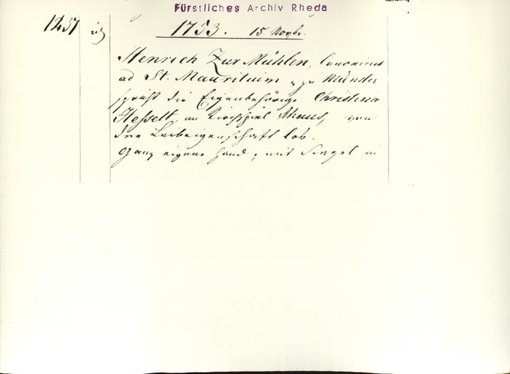 Fürstliches Archiv Rheda
1437
1753. 15 Novbr.
Henrich Zur Mühlen, Canonicus
ad St. Mauritium zu Münster
spricht die Eigenbehörige Christina
Hesselt im Kirchspiel Ahaus, von
der Leibeigenschaft los.
Ganz eigene Hand, mit Siegel